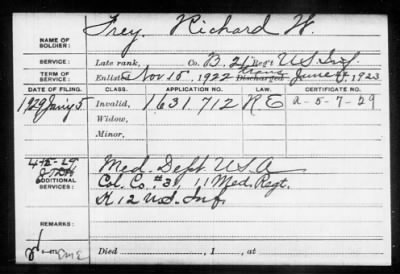 NAME OF SOLDIER: Frey, Richard W.
SERVICE: Late rank, Co. B, 21 Reg't U.S. Inf.
TERM OF SERVICE: Enlisted Nov 15, 1922 Discharged June, 1923
DATE OF FILING. CLASS. APPLICATION NO. LAW. CERTIFICATE NO.
1929 Jan'y 5 Invalid, 1631712 R E a-5-7-29
Widow,
Minor,
4-5-29 Med. Dept. U.S.A
ADDITIONAL SERVICES: Col. Co. #31, 11 Med. Regt.
K 12 U.S. Inf.
REMARKS:
Died , 1 , at